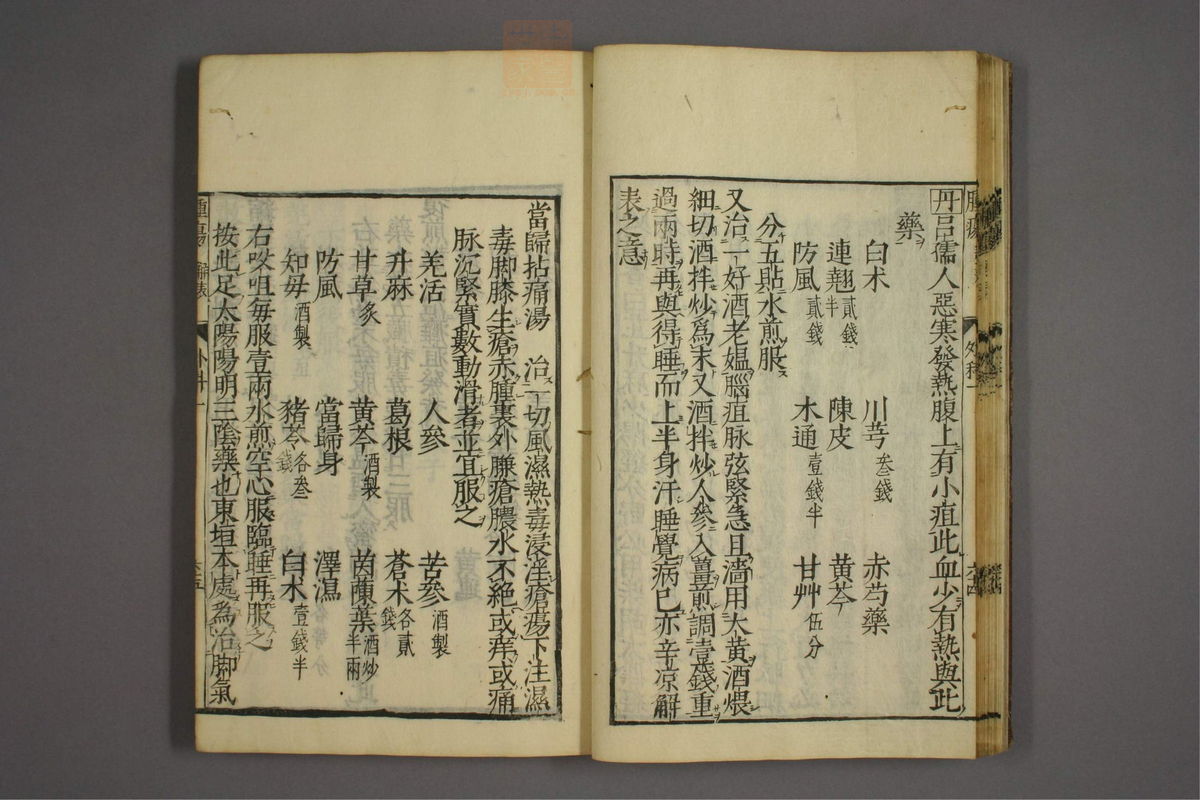 丹呂孺人惡寒發熱腹上有小疽此血少有熱與此
藥
白朮　川芎叁錢　赤芍藥
連翹貳錢半　陳皮　黄芩
防風貳錢　木通壹錢半　甘艸伍分
分五貼水煎服
又治一好酒老媪腦疽脉弦緊急且濇用大黄酒煨
細切酒拌炒爲末又酒拌炒人參入薑煎調壹錢重
過兩時再與得睡而上半身汗睡覺病已亦辛凉解
表之意
當歸拈痛湯　治一切風濕熱毒浸淫瘡瘍下注濕
毒脚膝生瘡赤腫裏外臁瘡膿水不絶或痒或痛
脉沉緊實數動滑者並宜服之
羌活　人參　苦參酒製
升麻　葛根　蒼朮各貳錢
甘草炙　黄芩酒製　茵蔯葉酒炒半兩
防風　當歸身　澤瀉
知毋酒製　豬苓各叁錢　白朮壹錢半
右㕮咀每服壹兩水煎空心服臨睡再服之
按此足太陽陽明三陰藥也東垣本處為治脚氣